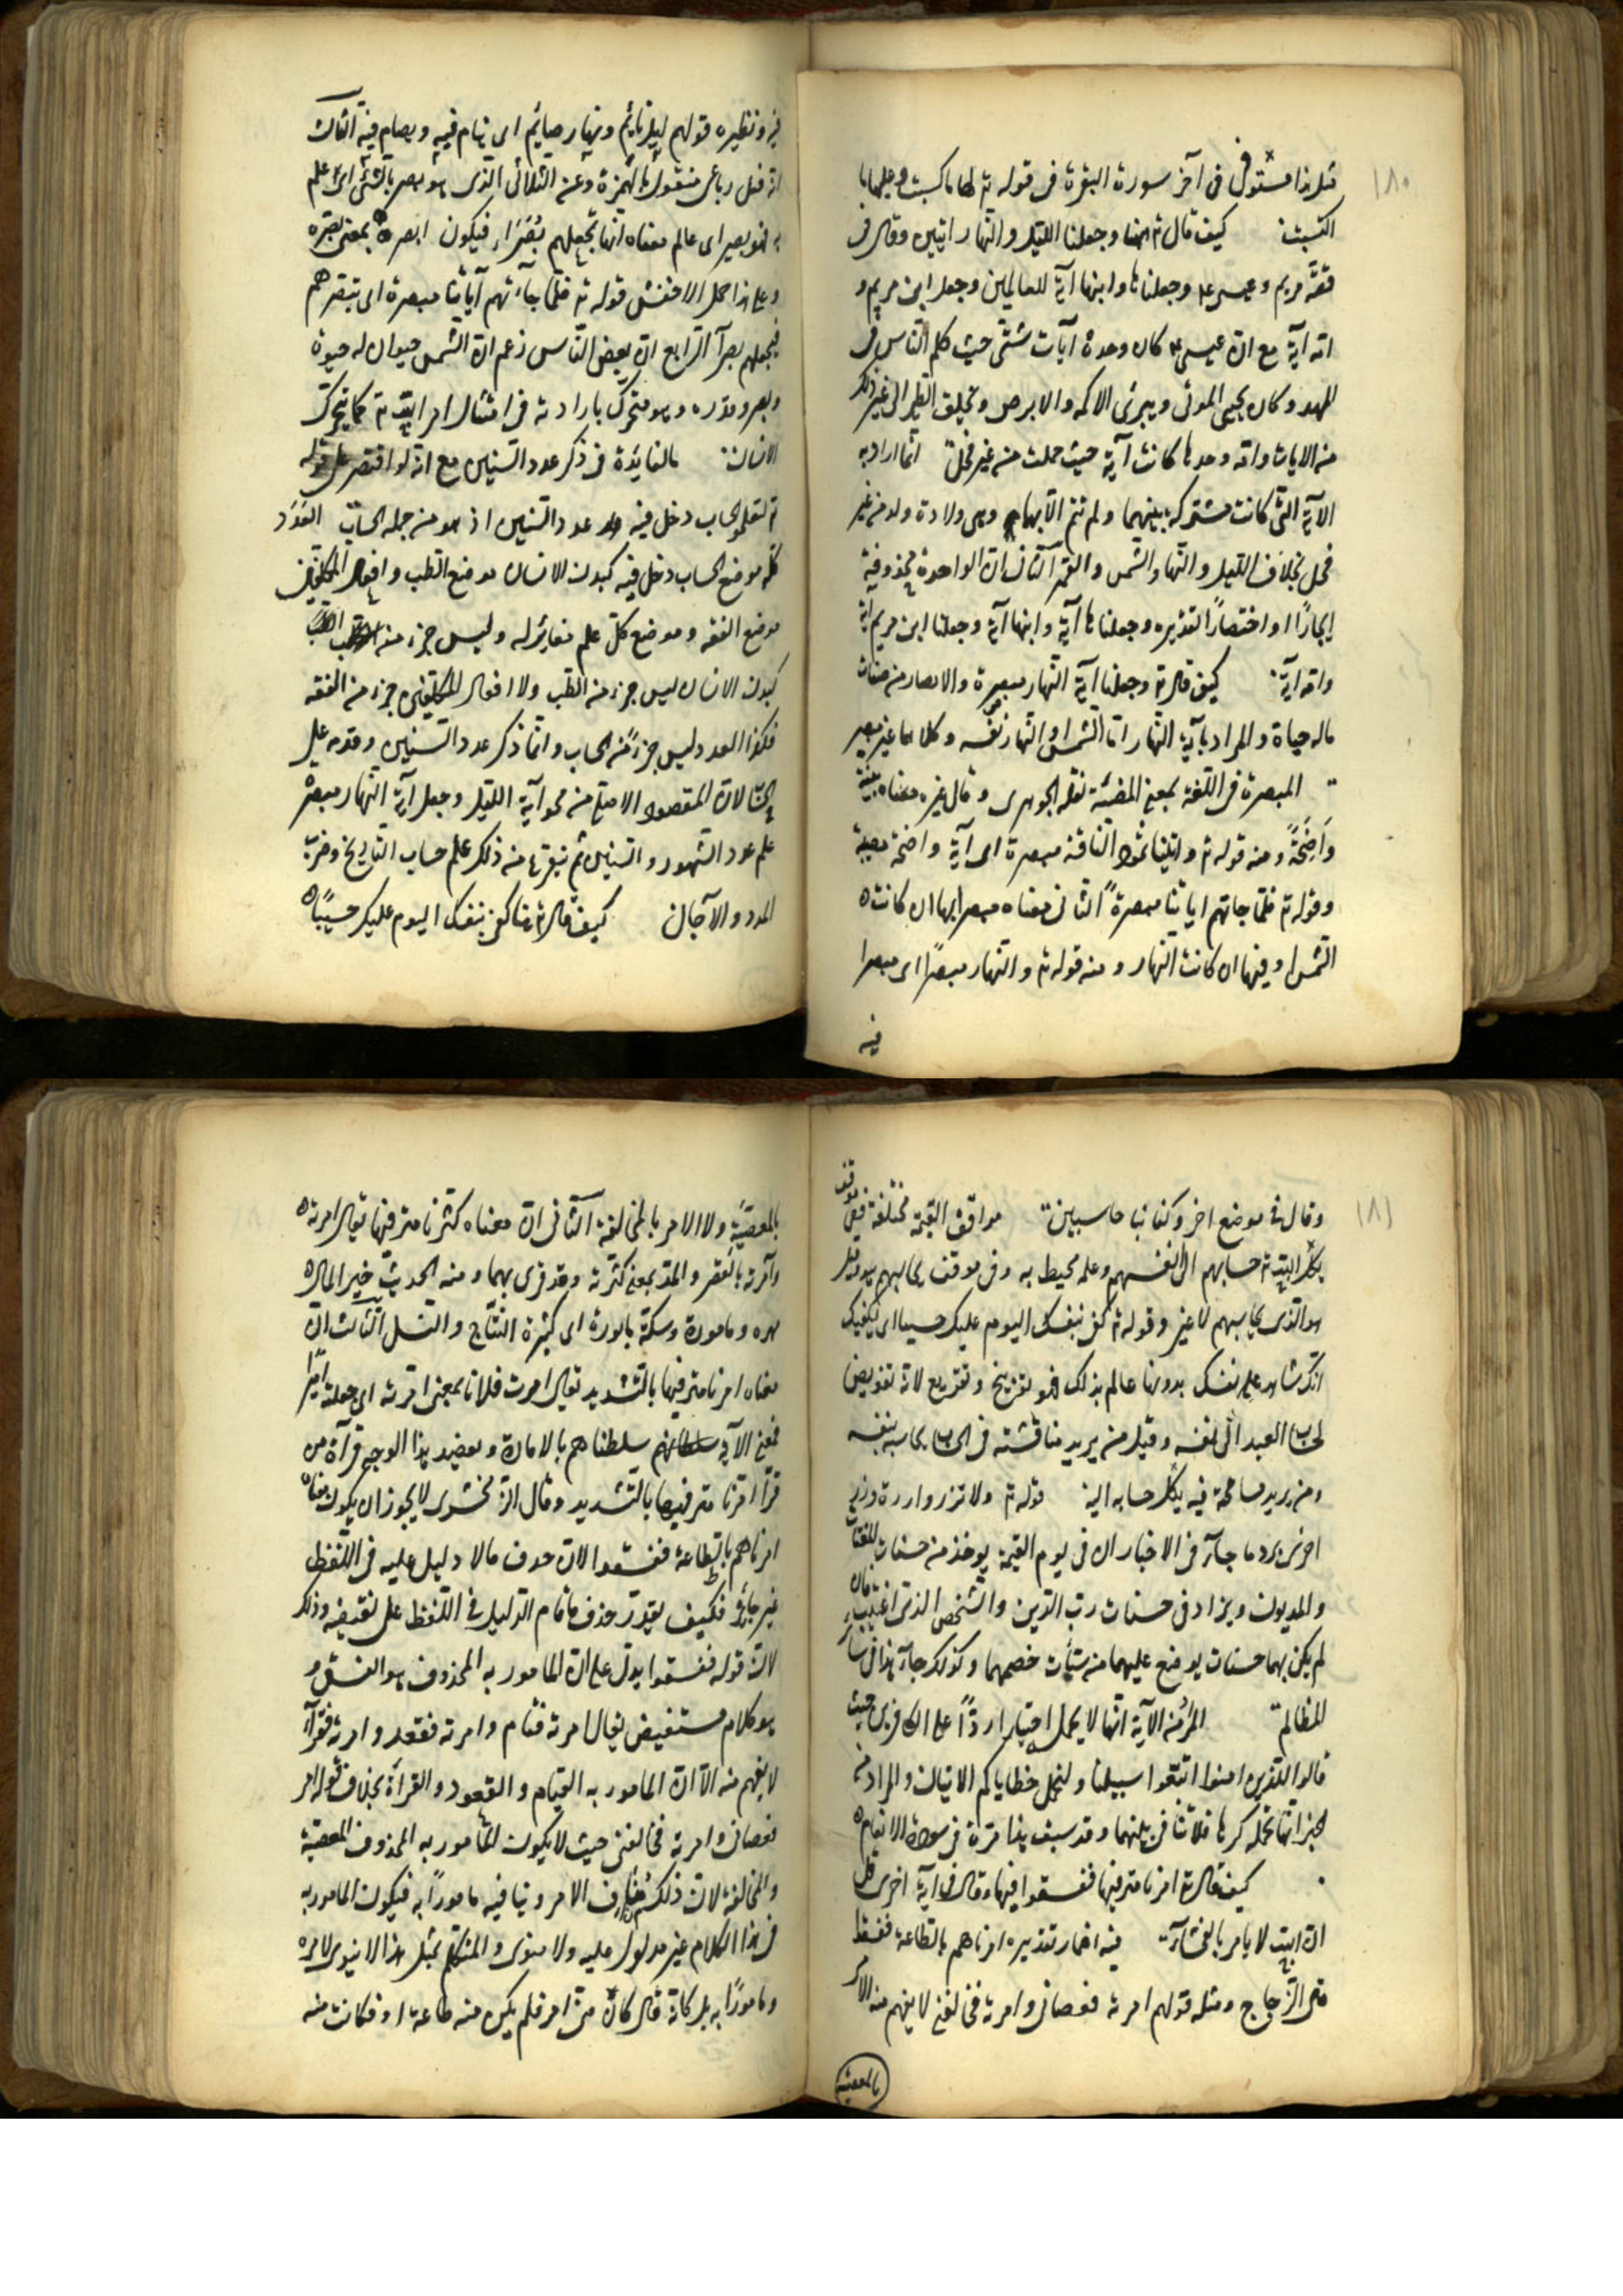 ١٨٠
قبل هذا مستوفى فى آخر سورة البقرة فى قوله تع لها ما كسبت وعليها ما
اكتسبت كيف قال تع هنا وجعلنا الليل والنهار ايتين وقال فى
قصة مريم وعيسى ع وجعلناها وابنها آية للعالمين وجعل ابن مريم و
امه آية مع ان عيسى ع كان وحده آيات شتى حيث كلم الناس فى
المهد وكان يحيى الموتى ويبرئ الاكمه والابرص ويخلق الطير الى غير ذلك
من الايات وامه وحدها كانت آية حيث حملت من غير فحل انما اراد به
الآية التى كانت مشتركة بينهما ولم تتم الا بهما وهى ولادة ولد من غير
فحل بخلاف الليل والنهار والشمس والقمر الثانى ان الواحدة محذوفة
ايجازًا او اختصارًا تقديره وجعلناها آية وابنها آية وجعلنا ابن مريم آية
وامه آية كيف قال تع وجعلنا آية النهار مبصرة والابصار من صفات
ماله حياة والمراد بآية النهار اما الشمس او النهار نفسه وكلاهما غير مبصر
المبصرة فى اللغة بمعنى المضيئة نقله الجوهرى وقال غيره معناه بينة
وَاضِحَةً ومنه قوله تع واتينا ثمود الناقة مبصرة اى آية واضحة مضيئة
وقوله تع فلما جاتهم اياتنا مبصرةً الثانى معناه مبصرا بها ان كانت
الشمس او فيها ان كانت النهار ومنه قوله تع والنهار مبصرًا اى مبصرا
فيه
فيه ونظيره قولهم ليل نائم ونهار صايم اى ينام فيه ويصام فيه الثالث
انه فعل رباعى منقول بالهمزة وعن الثلاثى الذى هو بصر بالشئ اى علم
به فهو بصير اى عالم معناه انها تجعلهم بُصَرَاء فيكون ابصره بمعنى بصّره
وعلى هذا حمل الاخفش قوله تع فلما جاءتهم آياتنا مبصرة اى تبصرهم
فتجعلهم بصرآ الرابع ان بعض الناس زعم ان الشمس حيوان له حيوة
وبصر وقدرة وهو متحرك بارادته فى امتثال امر الله تع كما يتحرك
الانسان ما الفايدة فى ذكر عدد السنين مع انه لو اقتصر على قوله
تع لتعلموا الحساب دخل فيه عدد السنين اذ هو من جملة الحساب العَدَد
كله موضع الحساب دخل فيه كبدن الانسان موضع الطب وافعال المكلفين
موضع الفقه وموضع كل علم مغاير له وليس جزء منه
كبدن الانسان ليس جزء من الطب ولا افعال المكلفين جزء من الفقه
فكذا العدد ليس جزءً من الحساب وانما ذكر عدد السنين وقدمه على
الحساب لان المقصود الاصلى من محو آية الليل وجعل آية النهار مبصرة
علم عدد الشهور والسنين ثم يتفرع من ذلك علم حساب التاريخ وضرب
المدد والآجال كيف قال تع هنا كفى بنفسك اليوم عليك حسيبًا
١٨١
وقال فى موضع اخر وكفا بنا حاسبين مواقف القيمة مختلفة ففى موقف
يكل الله تع حسابهم الى انفسهم وعلمه محيط به وفى موقف يحاسبهم هو وقيل
هو الذى يحاسبهم لا غير وقوله تع كفى بنفسك اليوم عليك حسيبا اى يكفيك
انك شاهد على نفسك بذنوبها عالم بذلك فهو توبيخ وتقريع لا انه تفويض
لحساب العبد الى نفسه وقيل من يريد مناقشته فى الحساب يحاسبه بنفسه
ومن يريد مسامحة فيه يكل حسابه اليه قوله تع ولا تزر وازرة وزر
اخرى يرد ما جآء فى الاخبار ان فى يوم القيمة يوخذ من حسنات المغتاب
والمديون ويزاد فى حسنات رب الدين والشخص الذى اغتيب فان
لم يكن بهما حسنات يوضع عليهما من سيئات خصمهما وكذلك جاء هذا فى سائر
المظالم المراد من الآية انها لا تحمل اختيارا ردًا على الكافرين حيث
قالوا للذين امنوا اتبعوا سبيلنا ولنحمل خطاياكم الآيتان والمراد من
الخبر انها تحمله كرها فلا تنافى بينهما وقد سبق هذا مرة فى سورة الانعام
كيف قال تع امرنا مترفيها ففسقوا فيها وقال فى آية اخرى قل
ان الله لا يامر بالفحشآء فيه اضمار تقديره امرناهم بالطاعة ففسقوا
قال الزجاج ومثله قولهم امرته فعصانى وامرته فخالفنى لا يفهم منه الامر
بالمعصية
بالمعصيّة ولا الامر بالمخالفة الثانى ان معناه كثرنا مترفيها يقال امرته
وآمرته بالقصر والمد بمعنى كثرته وقد قرى بهما ومنه الحديث خير المال
مهرة مامورة وسكة مابورة اى كثيرة النتاج والنسل الثالث ان
معناه امرنا مترفيها بالتشديد يقال امرت فلانا بمعنى امّرته اى جعلته اميرًا
فمعنى الآية سلطناهم بالامارة ويعضد هذا الوجه قرآة من
قرأ امّرنا مترفيها بالتشديد وقال الزمخشرى لا يجوز ان يكون معناه
امرناهم بالطاعة ففسقوا لان حذف ما لا دليل عليه فى اللفظ
غير جائز فكيف يقدر حذف ما قام الدليل فى اللفظ على نقيضه وذلك
لان قوله ففسقوا يدل على ان المامور به المحذوف هو الفسق و
هو كلام مستفيض يقال امرته فقام وامرته فقعد وامرته فقرأ
لا يفهم منه الا ان المامور به القيام والقعود والقرأة بخلاف قولهم امرته
فعصانى وامرته فخالفنى حيث لا يكون المامور به المحذوف المعصية
والمخالفة لان ذلك مخالف الامر وينافيه مامورًا به فيكون المامور به
فى هذا الكلام غير مدلول عليه ولا منوى والمتكلم بمثل هذا لا ينوى لامره
مامورًا به بل كانه قال كان منى امر فلم يكن منه طاعة او فكانت منه